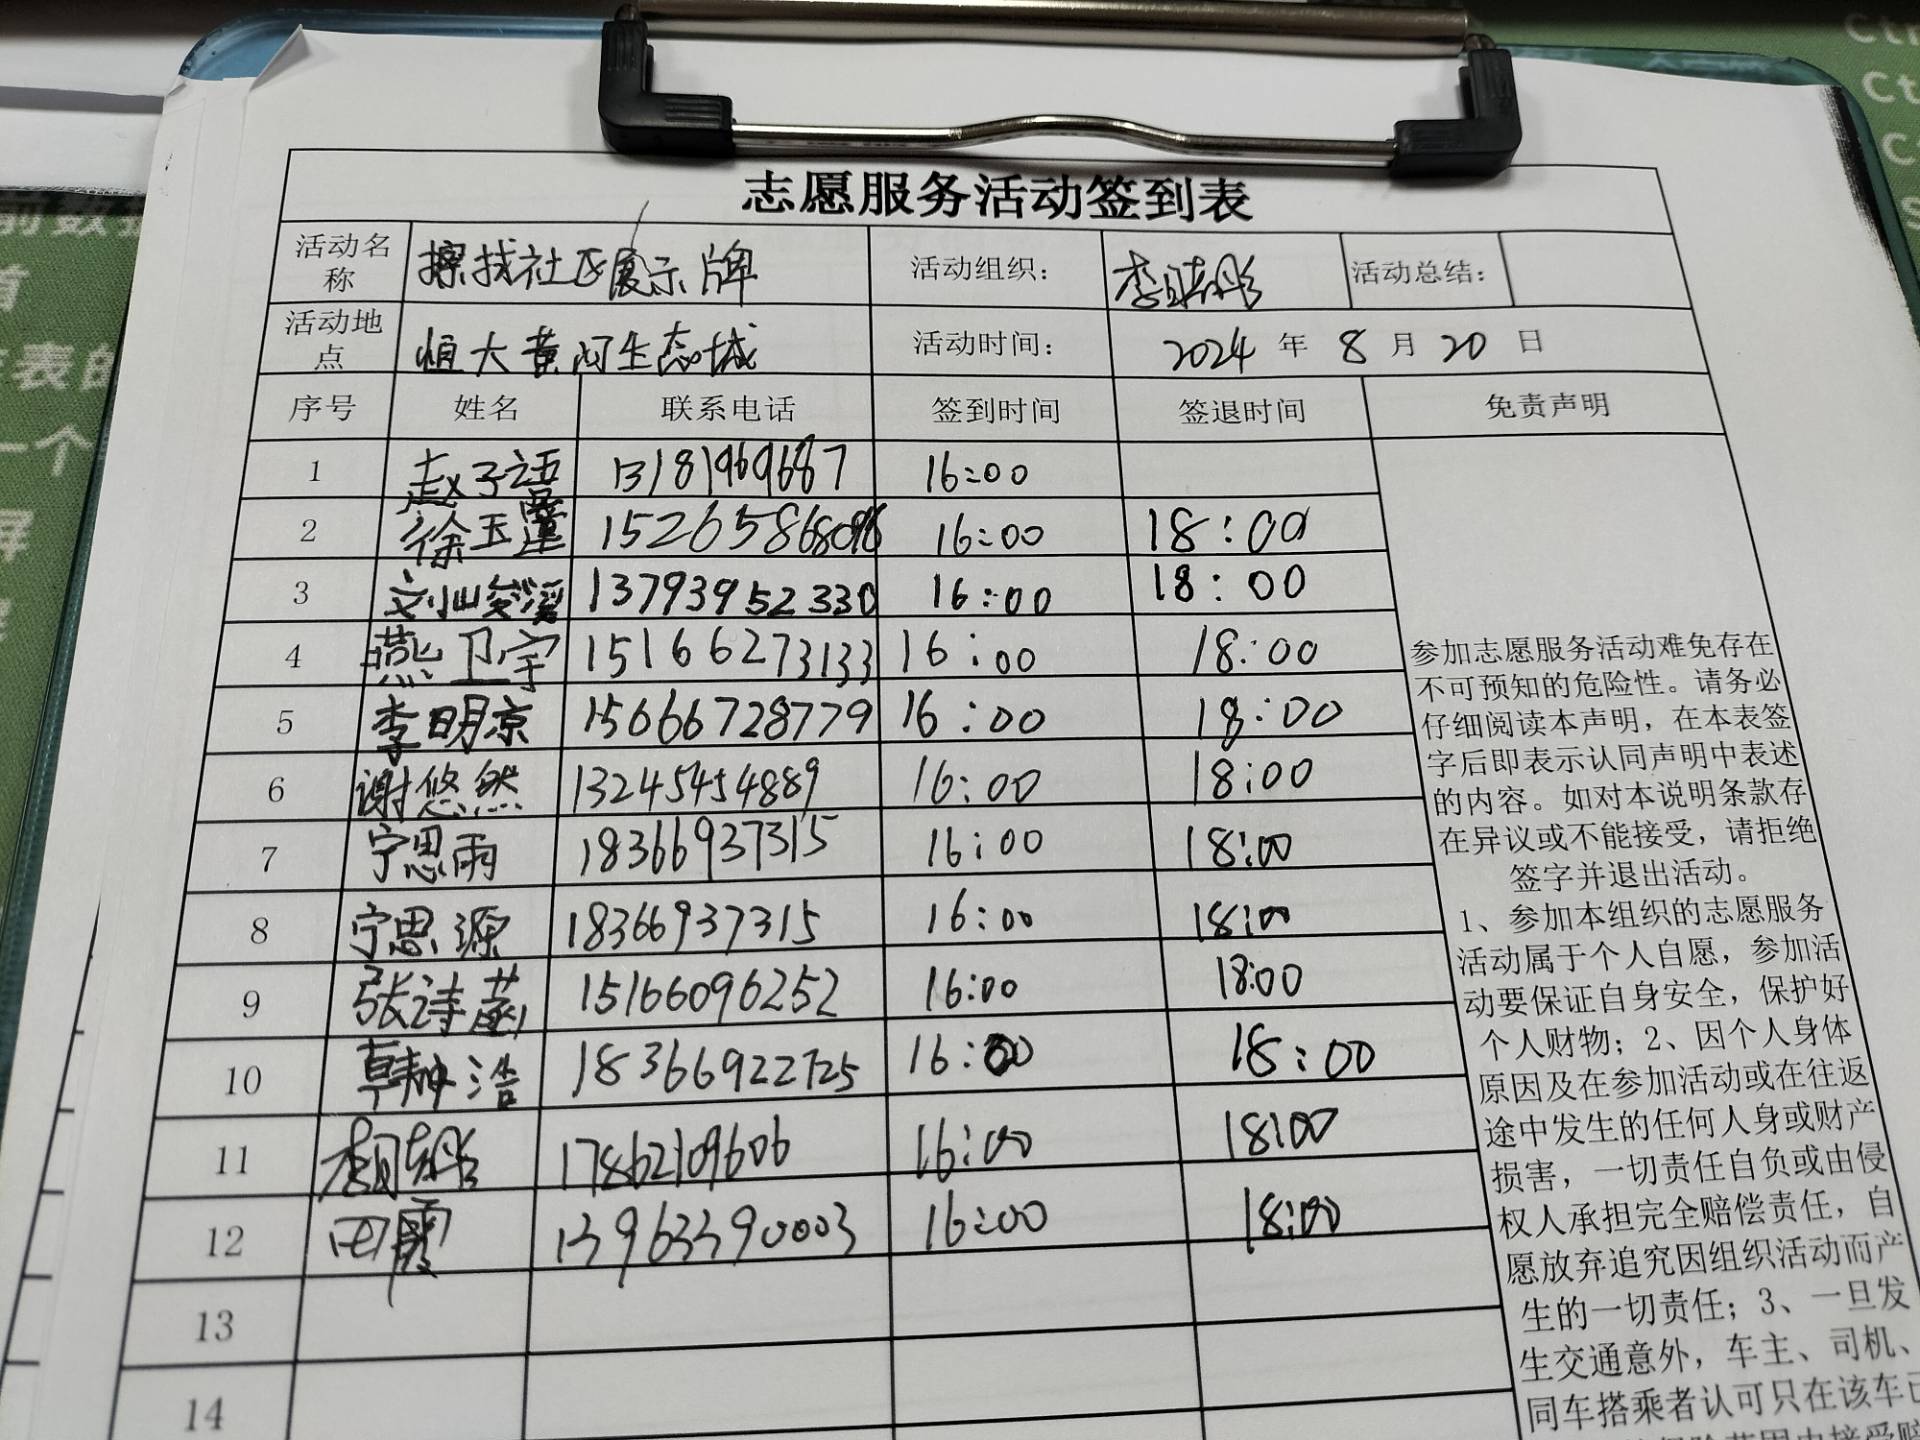 志愿服务活动签到表
活动名称 擦拭社区展示牌 活动组织： 李晓彤 活动总结：
活动地点 恒大黄河生态城 活动时间： 2024 年 8 月 20 日
序号 姓名 联系电话 签到时间 签退时间 免责声明
1 赵子语 13181969687 16:00
2 徐玉 16:00 18:00
3 刘 13793952330 16:00 18:00
4 燕卫宇 15166273133 16:00 18:00
5 李明京 15666728779 16:00 18:00
6 谢悠然 13245454889 16:00 18:00
7 宁思雨 18366937315 16:00 18:00
8 宁思源 18366937315 16:00 18:00
9 张诗涵 15166096252 16:00 18:00
10 韩坤浩 18366922725 16:00 18:00
11 17862109606 16:00 18:00
12 田霞 13963390003 16:00 18:00
13
14
参加志愿服务活动难免存在
不可预知的危险性。请务必
仔细阅读本声明，在本表签
字后即表示认同声明中表述
的内容。如对本说明条款存
在异议或不能接受，请拒绝
签字并退出活动。
1、参加本组织的志愿服务
活动属于个人自愿，参加活
动要保证自身安全，保护好
个人财物；2、因个人身体
原因及在参加活动或在往返
途中发生的任何人身或财产
损害，一切责任自负或由侵
权人承担完全赔偿责任，自
愿放弃追究因组织活动而产
生的一切责任；3、一旦发
生交通意外，车主、司机、
同车搭乘者认可只在该车已